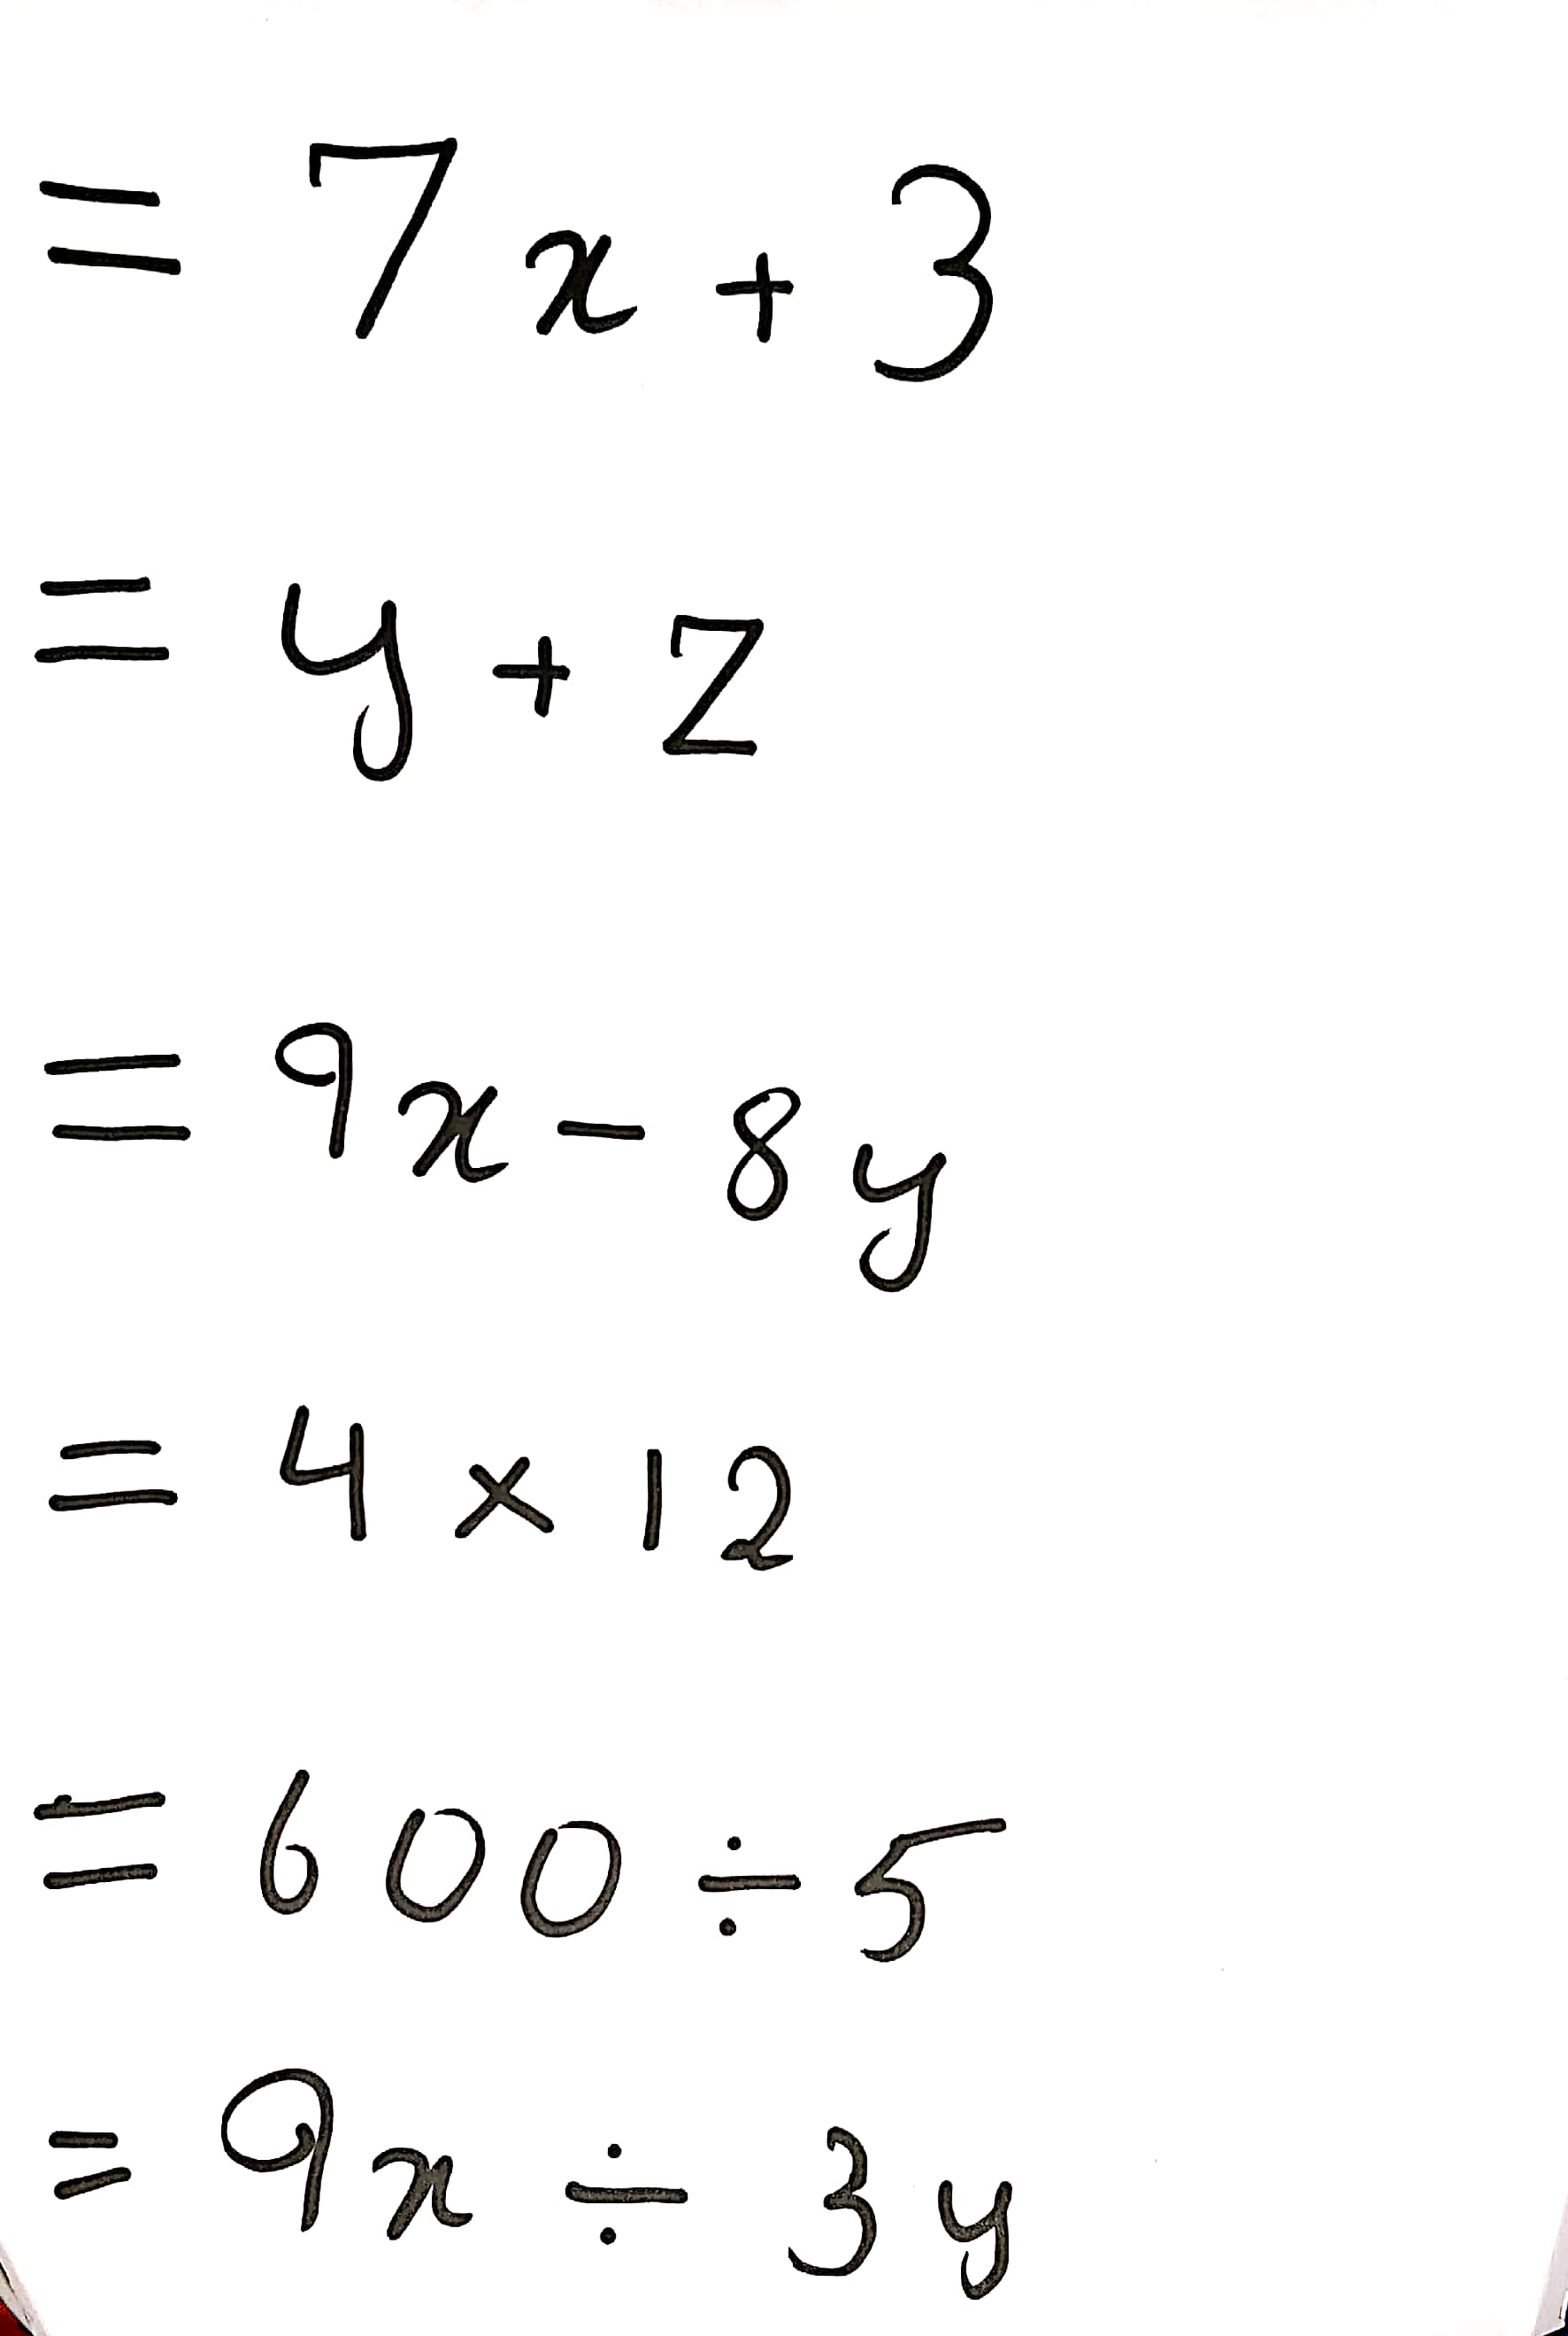 = 7x + 3
= y + z
= 9x - 8y
= 4 × 12
= 600 ÷ 5
= 9x ÷ 3y